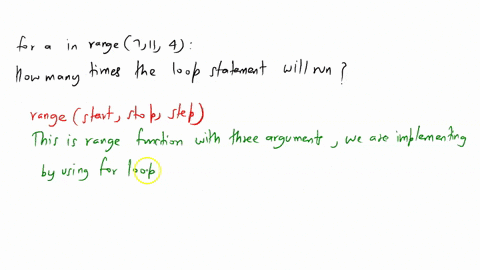 for a in range (7,11, 4) :
How many times the loop statement will run ?
range (start, stop, step)
This is range function with three arguments, we are implementing
by using for loop